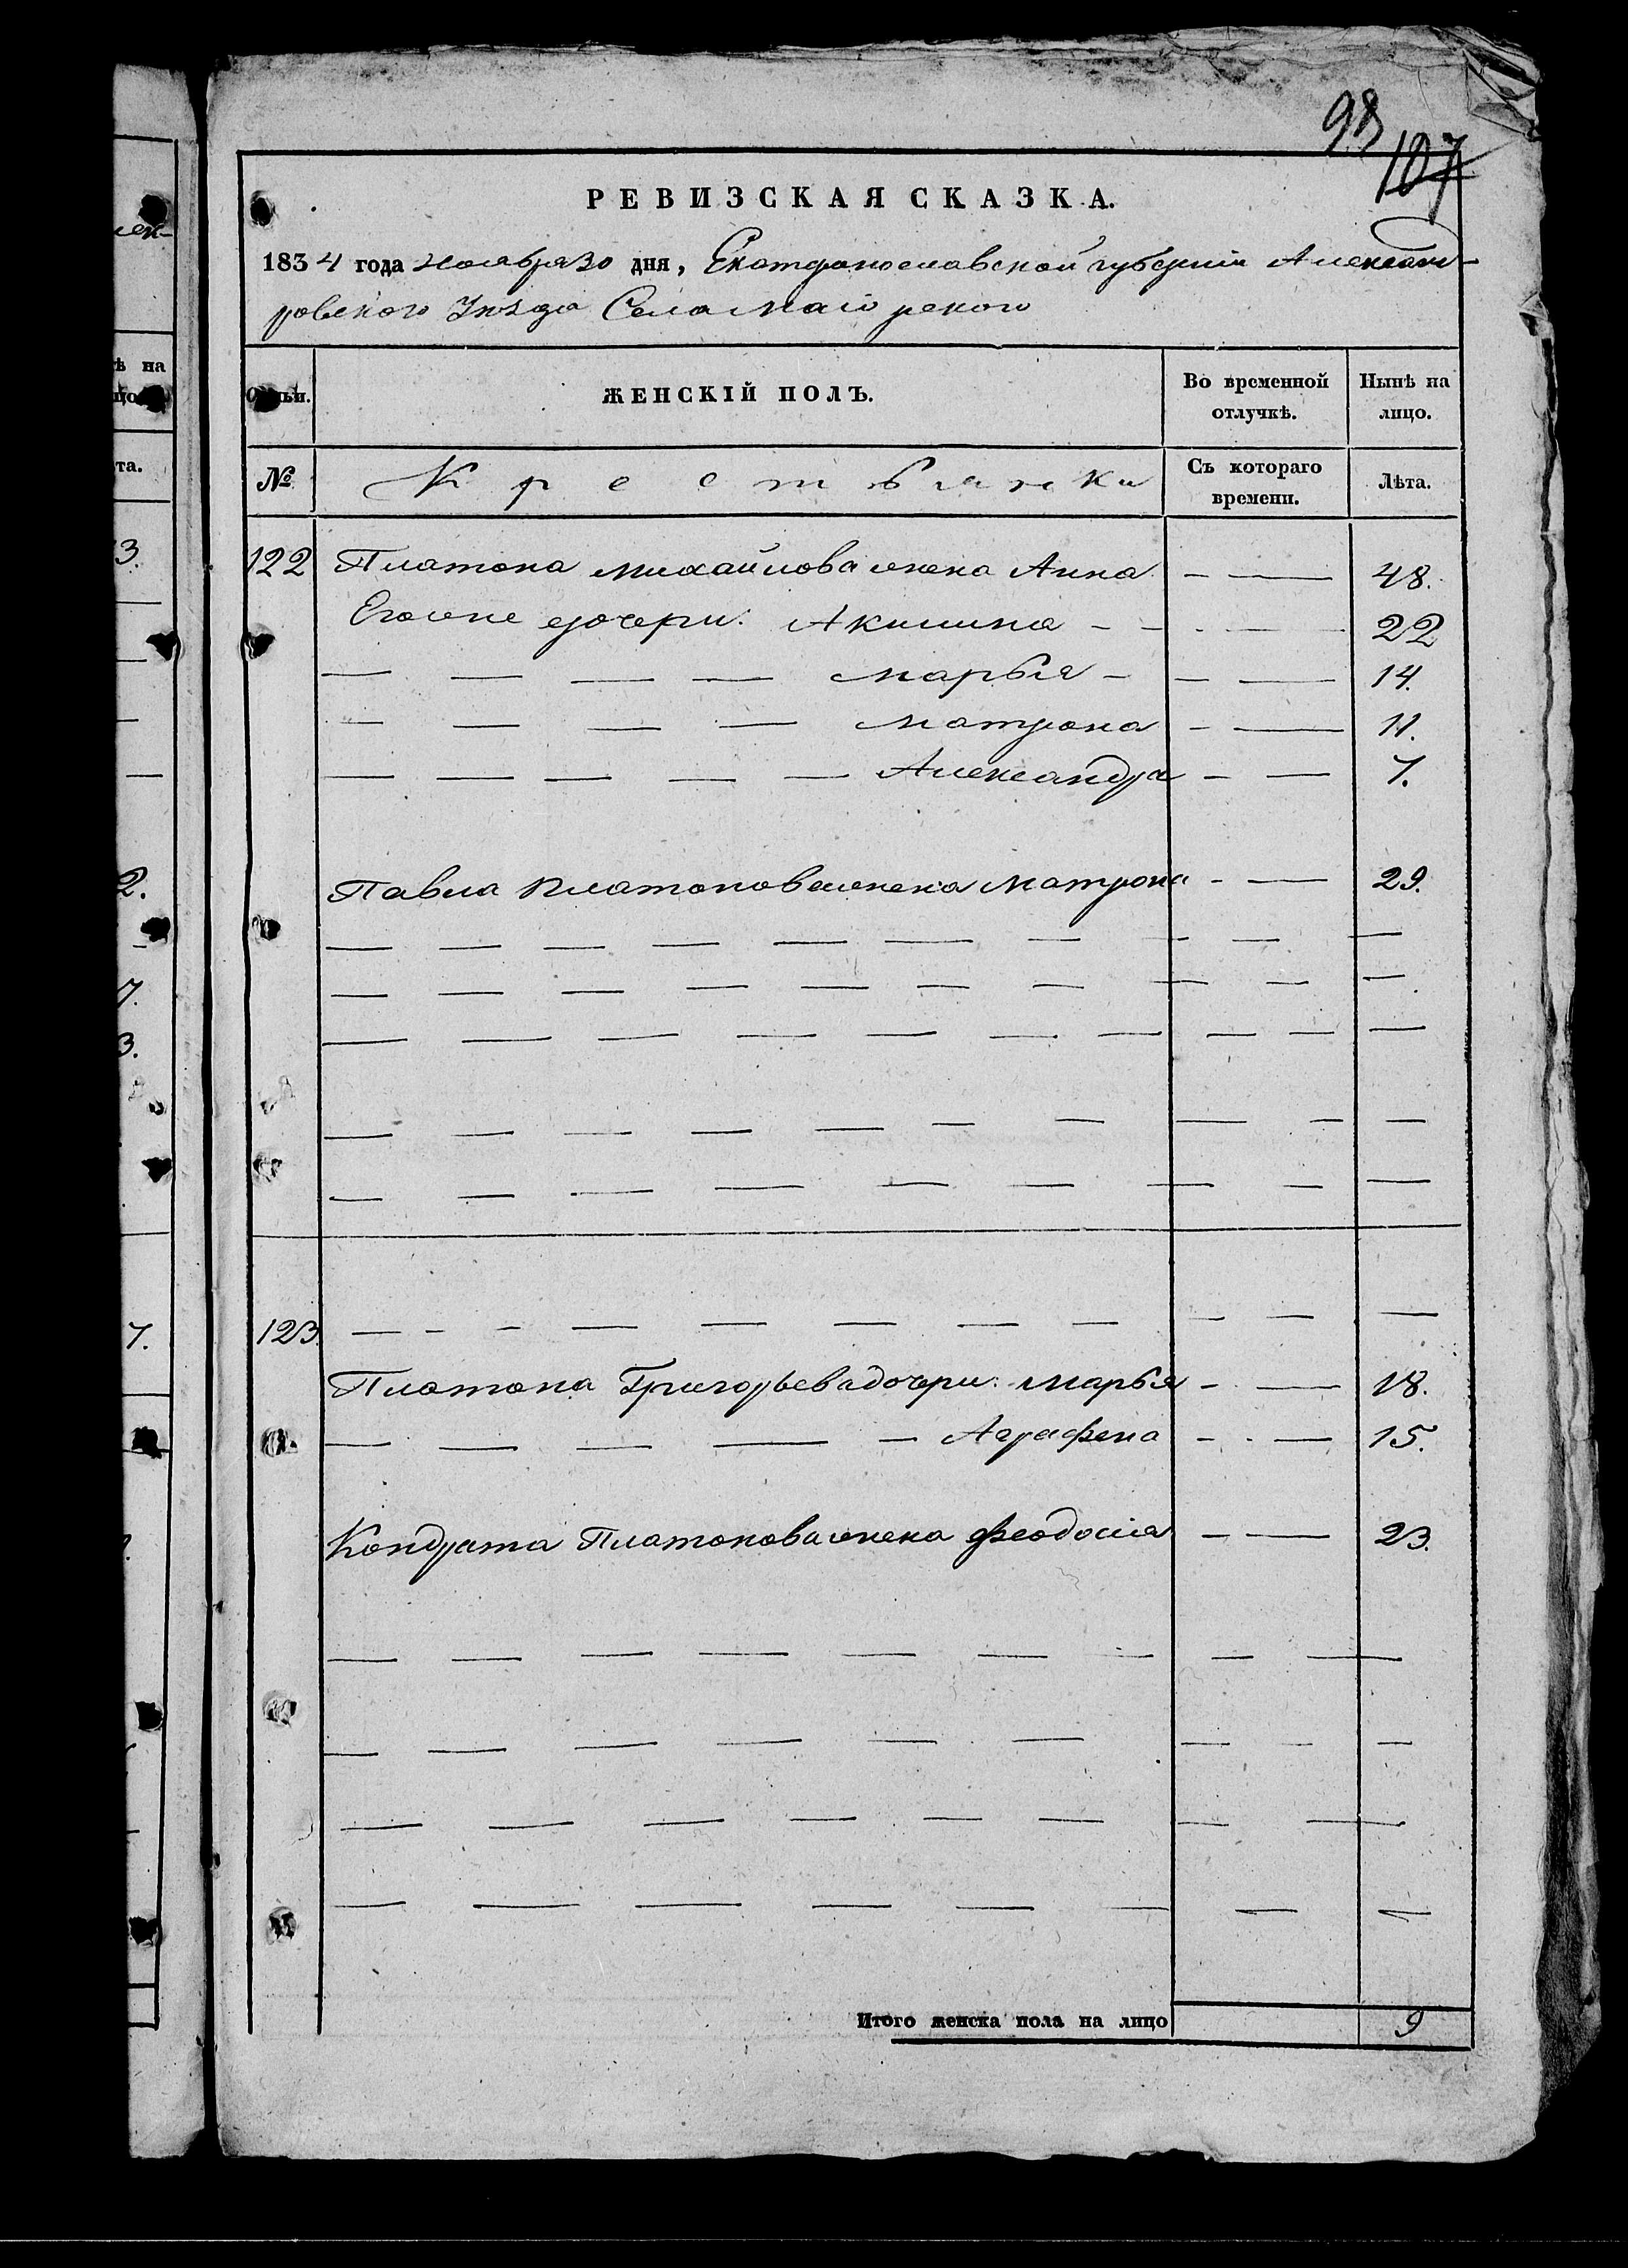 98
107
РЕВИЗСКАЯ СКАЗКА.
1834 года ноября 30 дня, Екатеринославской губернии Александ-
ровского Уѣзда Села Маіорского
ѣ на
ЖЕНСКІЙ ПОЛЪ.
Во временной отлучкѣ.
Нынѣ на лицо.
та.
№
Крестьянки
Съ котораго времени.
Лѣта.
122 Платона Михайлова жена Анна — — 48.
Его же дочери: Акилина — — — 22
— — — — Марья — — — 14.
— — — — Матрона — — 11.
— — — — — Александра — — 7.
Павла Платонова жена Матрона — — 29.
123. — — — — — — — — — — —
Платона Григорьева дочери: Марья — — 18.
— — — — — Аграфена — — 15.
Кондрата Платонова жена Феодосія — — 23.
Итого женска пола на лицо 9